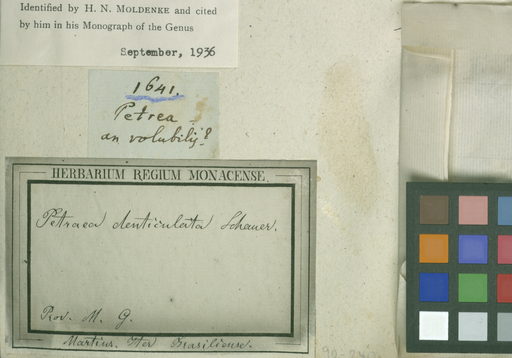 Identified by H. N. MOLDENKE and cited
by him in his Monograph of the Genus
September, 1936
1641.
Petrea
an volubilis?
HERBARIUM REGIUM MONACENSE.
Petraea denticulata Schauer.
Prov. M. G.
Martius. Iter Brasiliense.